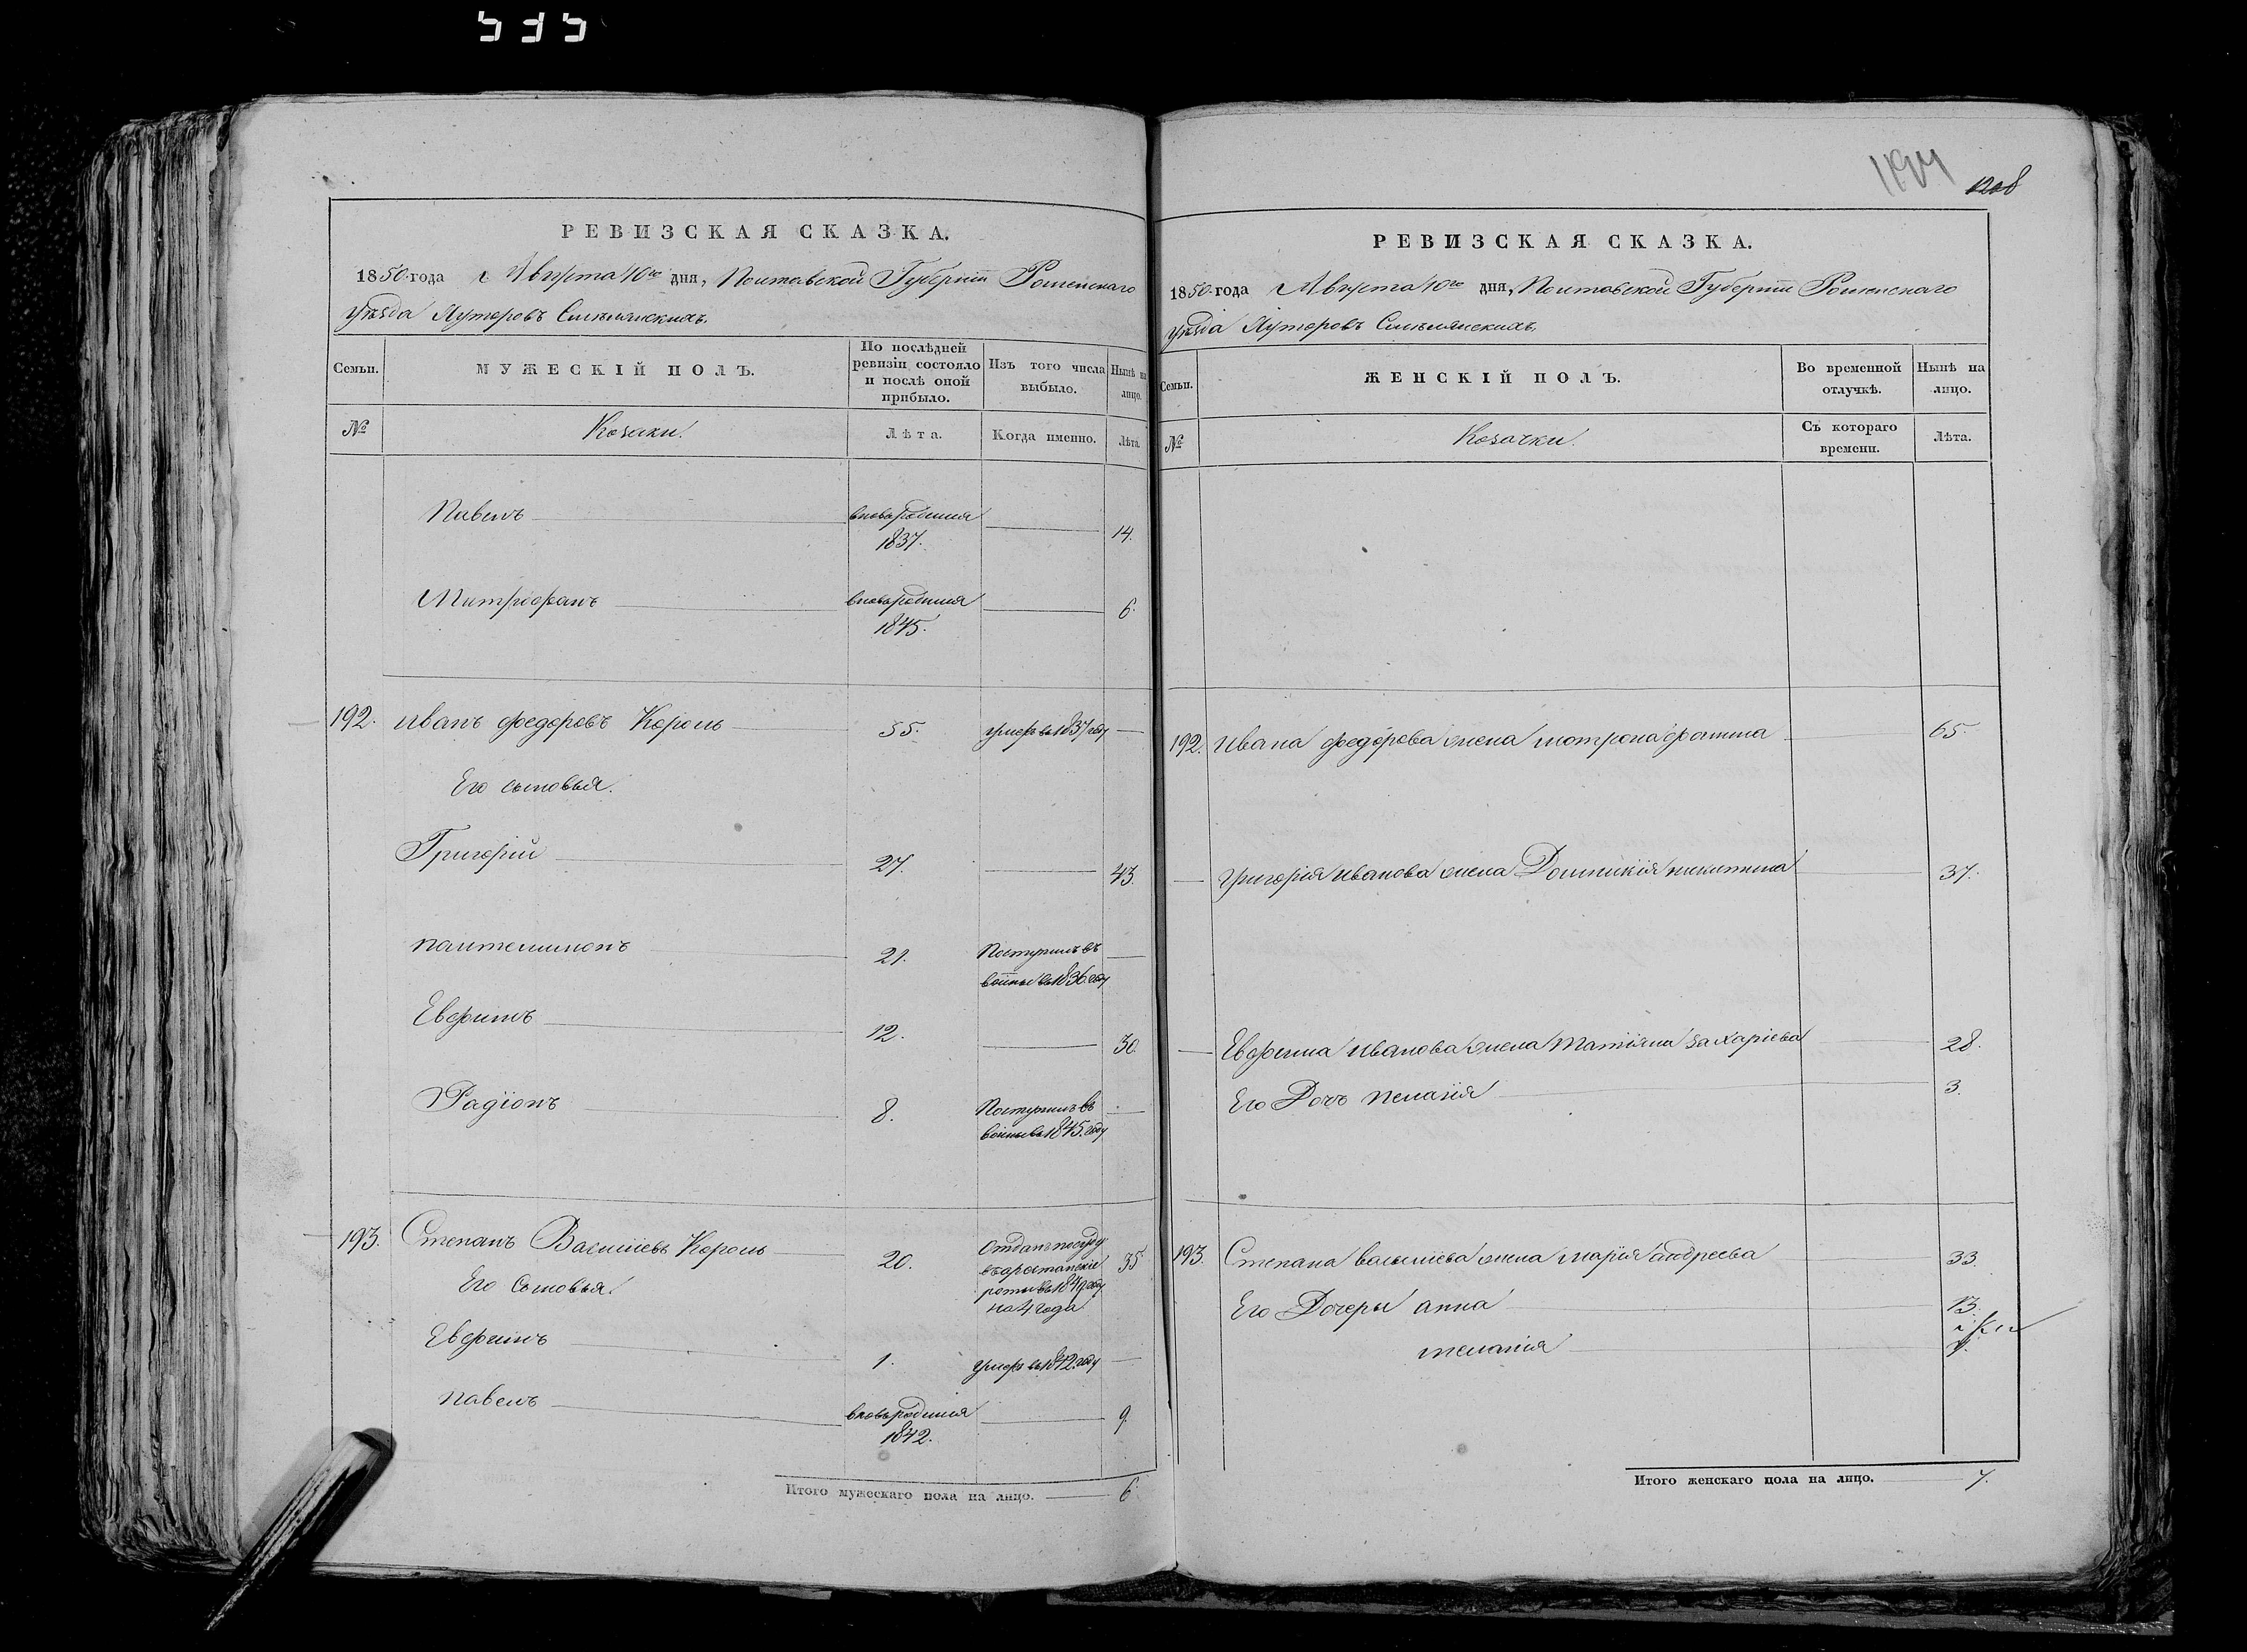 535
РЕВИЗСКАЯ СКАЗКА.
1850 года Августа 10го дня, Полтавской Губерніи Роменскаго
уѣзда Хуторовъ Смѣлянскихъ.
Семьи.
МУЖЕСКІЙ ПОЛЪ.
По послѣдней ревизіи состояло и послѣ оной прибыло.
Изъ того числа выбыло.
Нынѣ на лицо.
№
Козаки.
Лѣта.
Когда именно.
Лѣта.
Павелъ вновьродился 14.
1837.
Митрофанъ вновьродился 6.
1845.
192. Иванъ Федоровъ Король 55. умеръ въ 1837 году
Его сыновья.
Григорій 27. 43.
Пантелимонъ 21. Поступилъ въ
1836 году
Евфимъ 12. 30.
Радіонъ 8. Поступилъ въ
1845 году
193. Степанъ Василіевъ Король 20. Отданъ 35
Его Сыновья. въ арестанскіе
роты въ 1849 году
на 4 года
Евфимъ 1. умеръ въ 1842 году
Павелъ вновьродился 9.
1842.
Итого мужескаго пола на лицо. 6.
1208
РЕВИЗСКАЯ СКАЗКА.
1850 года Августа 10го дня, Полтавской Губерніи Роменскаго
уѣзда Хуторовъ Смѣлянскихъ.
Семьи.
ЖЕНСКІЙ ПОЛЪ.
Во временной отлучкѣ.
Нынѣ на лицо.
№
Козачки.
Съ котораго времени.
Лѣта.
192. Ивана Федорова жена Мотрона Фомина 65.
Григорія Иванова жена Домникія Никитина 37.
Евфима Иванова жена Татіяна Захаріева 28.
Его Дочъ Пелагія 3.
193. Степана Василіева жена Марія Андреева 33.
Его Дочеры Анна 13.
Меланія
Итого женскаго пола на лицо. 7.